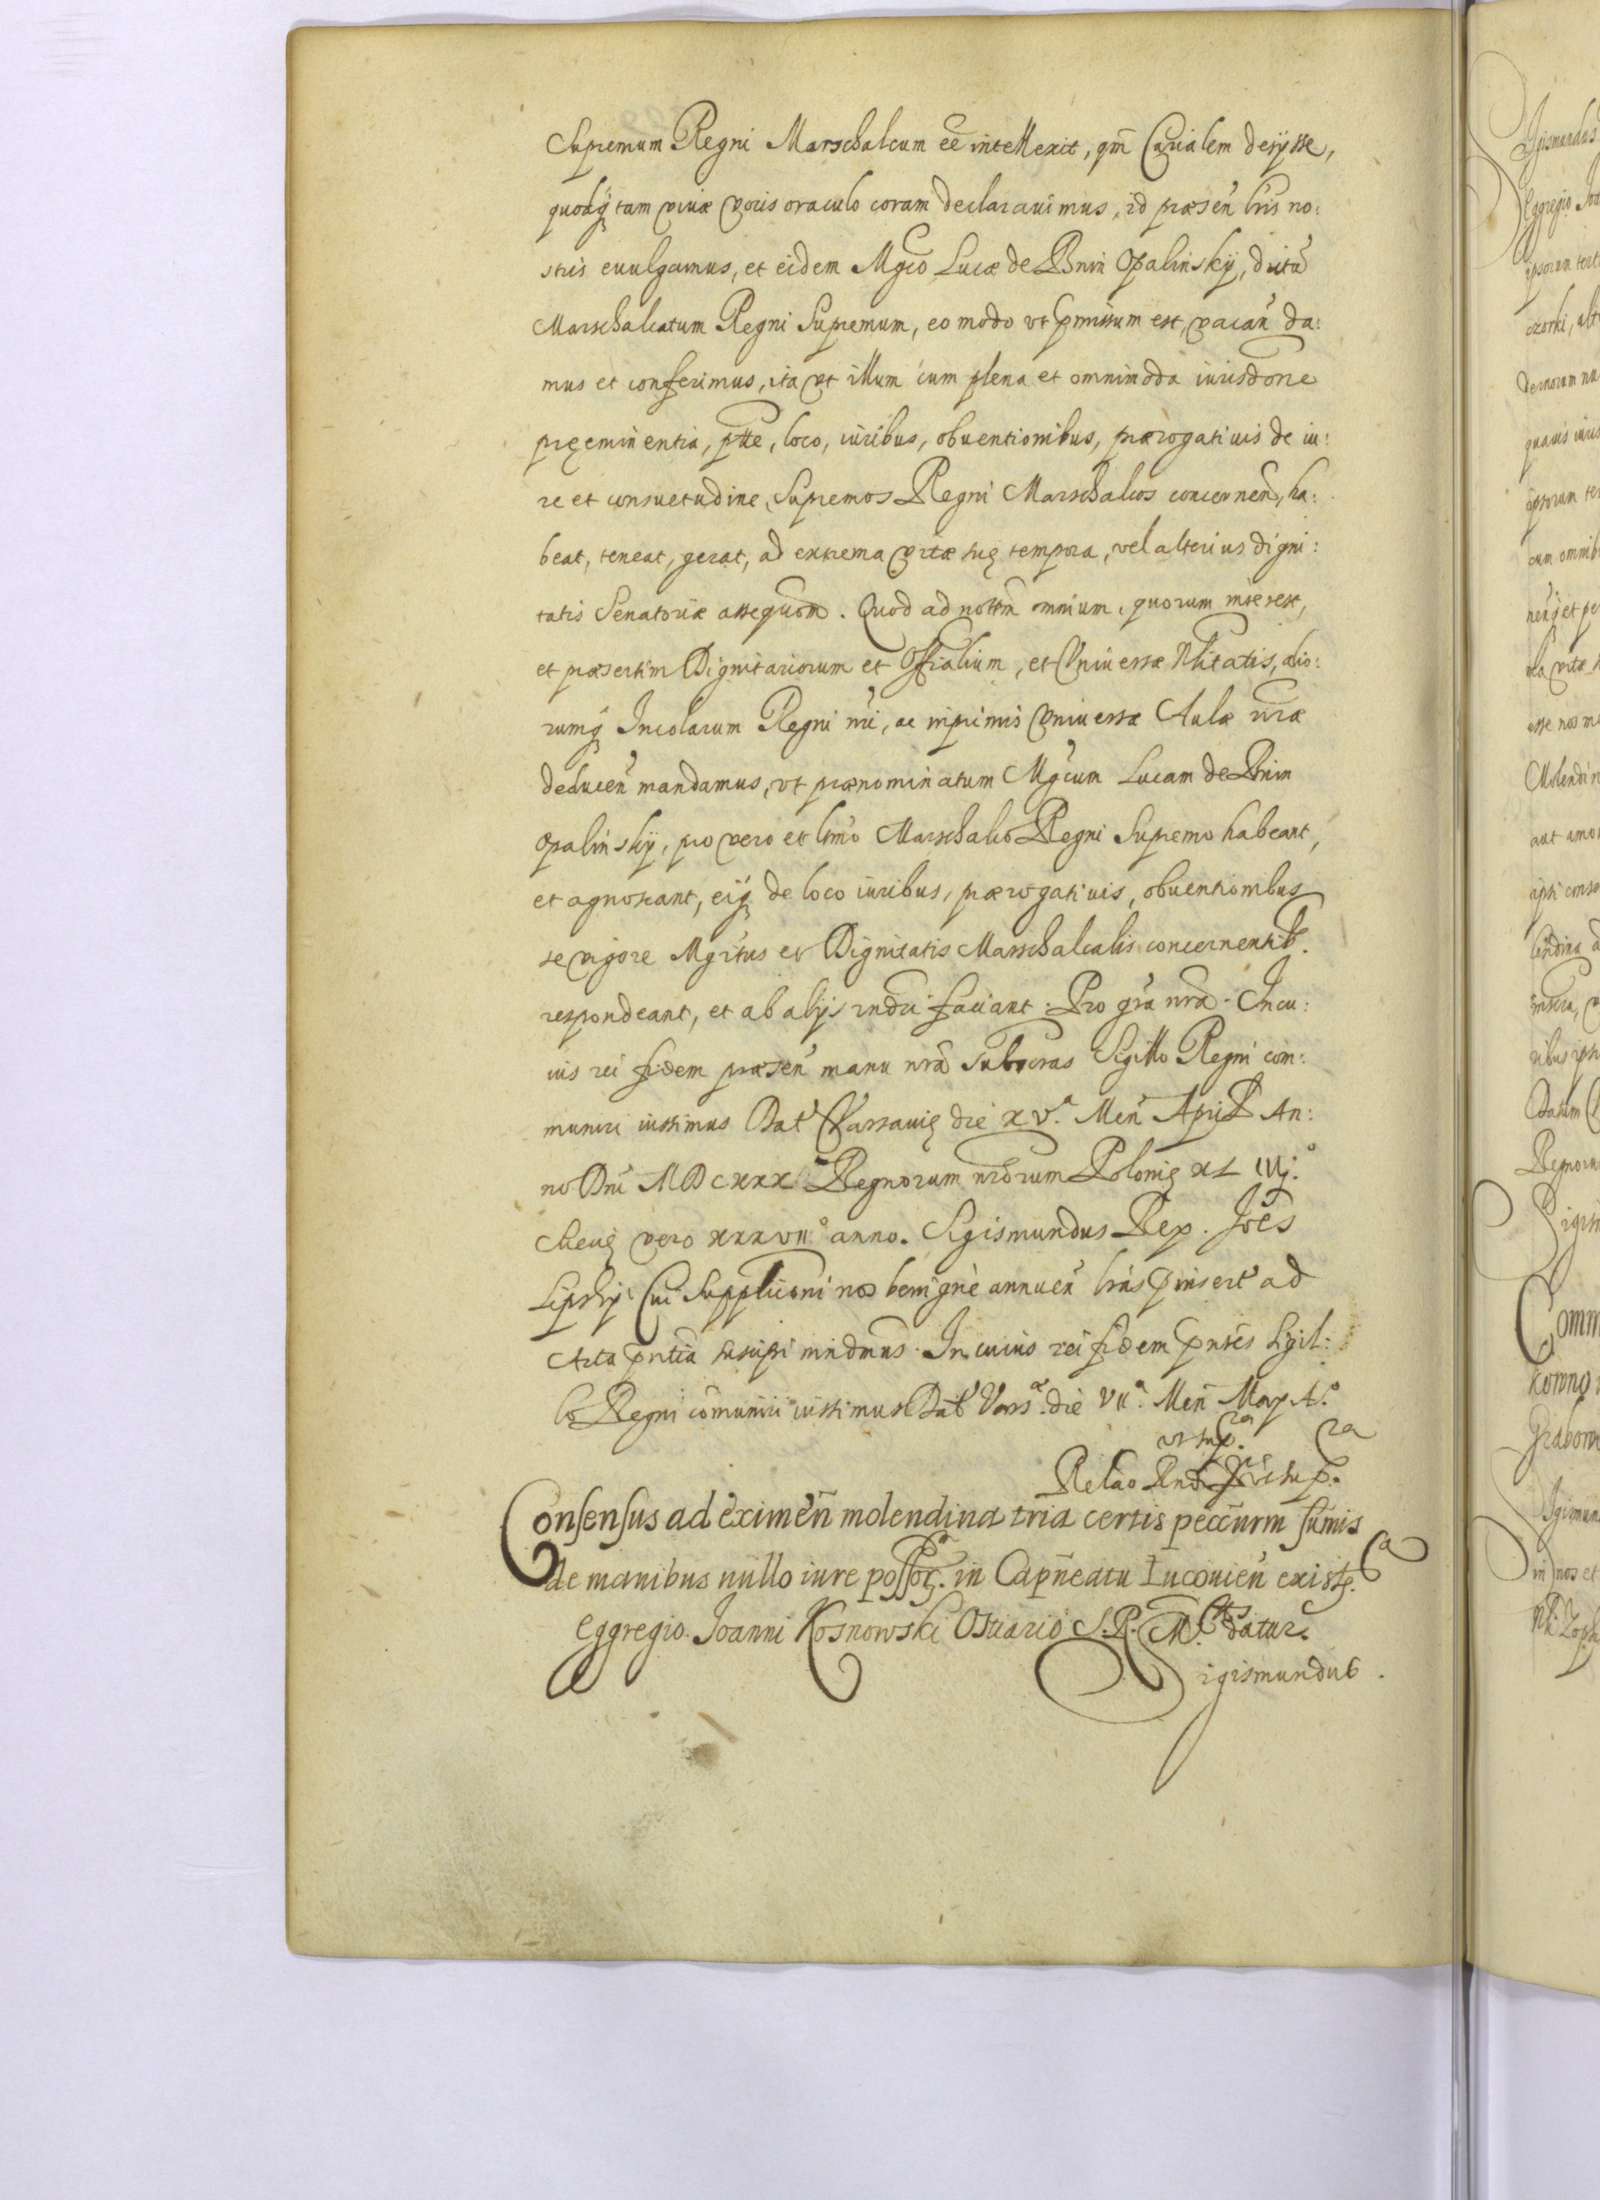 Supremum Regni Marschalcum eē intellexit, qm̄ Curialem desijsse,
quodq́ tam viuæ vocis oraculo coram declarauimus, id præsen̄ lris no:
stris euulgamus, et eidem Mgco Lucæ de Bnin Opalinskÿ, dictū
Marschalcatum Regni Supremum, eo modo vt pmissum est, vacan̄ da:
mus et conferimus, ita vt illum cum plena et omnimoda iurisdone
pręeminentia, ptte, loco, iuribus, obuentionibus, prærogatiuis de iu:
re et consuetudine, Supremos Regni Marschalcos concernen̄, ha:
beat, teneat, gerat, ad extrema vitæ suę tempora, vel alterius digni:
tatis Senatoriæ assequōm. Quod ad nottm̄ omnium, quorum interest,
et præsertim Dignitariorum et Officialium, et Vniuersæ Nlitatis, alio:
rumq́ Incolarum Regni nri, ac inprimis Vniuersæ Aulæ nræ
deducen̄ mandamus, vt prænominatum Mgcum Lucam de Bnin
Opalinskÿ, pro vero et ltmo Marschalco Regni Supremo habeant,
et agnoscant, eiq́ de loco iuribus, prærogatiuis, obuentionibus
se vigore Mgrtus et Dignitatis Marschalcalis concernentib.
respondeant, et ab alijs rndri faciant. Pro gra nra. In cu:
ius rei fidem præsen̄ manu nra subscras Sigillo Regni com:
muniri iussimus Dat Varsauię die XV.ª Men̄ April An:
no Dni MDCXXX Regnorum nrorum Polonię XLIIIj.º
Sueuę vero XXXVIIº anno. Sigismundus Rex. Joēs
Lipskj Cui Supplicōni nos benignè annuen̄ lras pinsert ad
Acta pntia suscipi mndmus. In cuius rei fidem pntes Sigil:
lo Regni comuniri iussimus Dat Vars.æ die VIIª. Men̄ Maÿ A.º
vt supra.
Relāo vt sup.ra
Consensus ad eximen̄ molendina tria certis peccūrm̄ sūmis
de manibus nullo iure posſor. in Capn̄eatu Łucouien̄ existen.
Eggregio Joanni Kosnowski Ostiario S. R. M.tis datur.
Sigismundus.